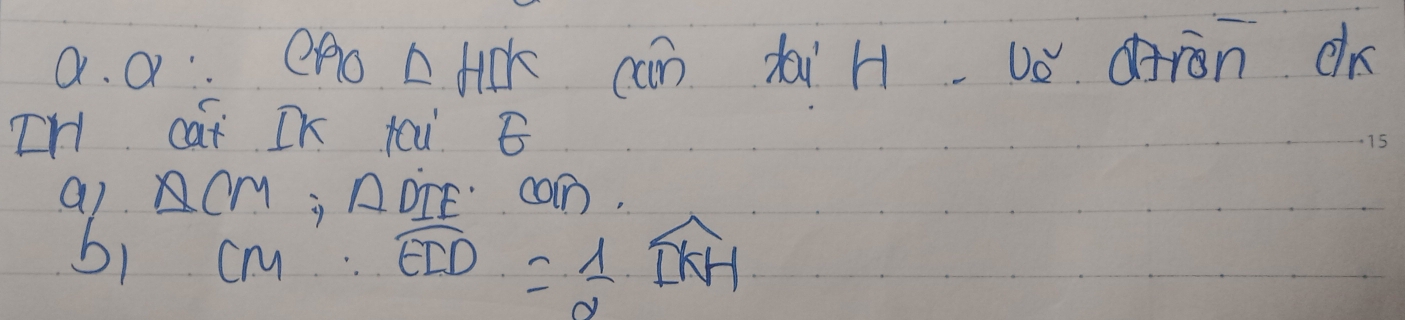 2.2: Cho Δ HIK cân tại H. Vẽ đtròn đk
IH cắt IK tại E
a) CM; Δ DIE cân.
b) CM: EID = 1/2 IKH
15